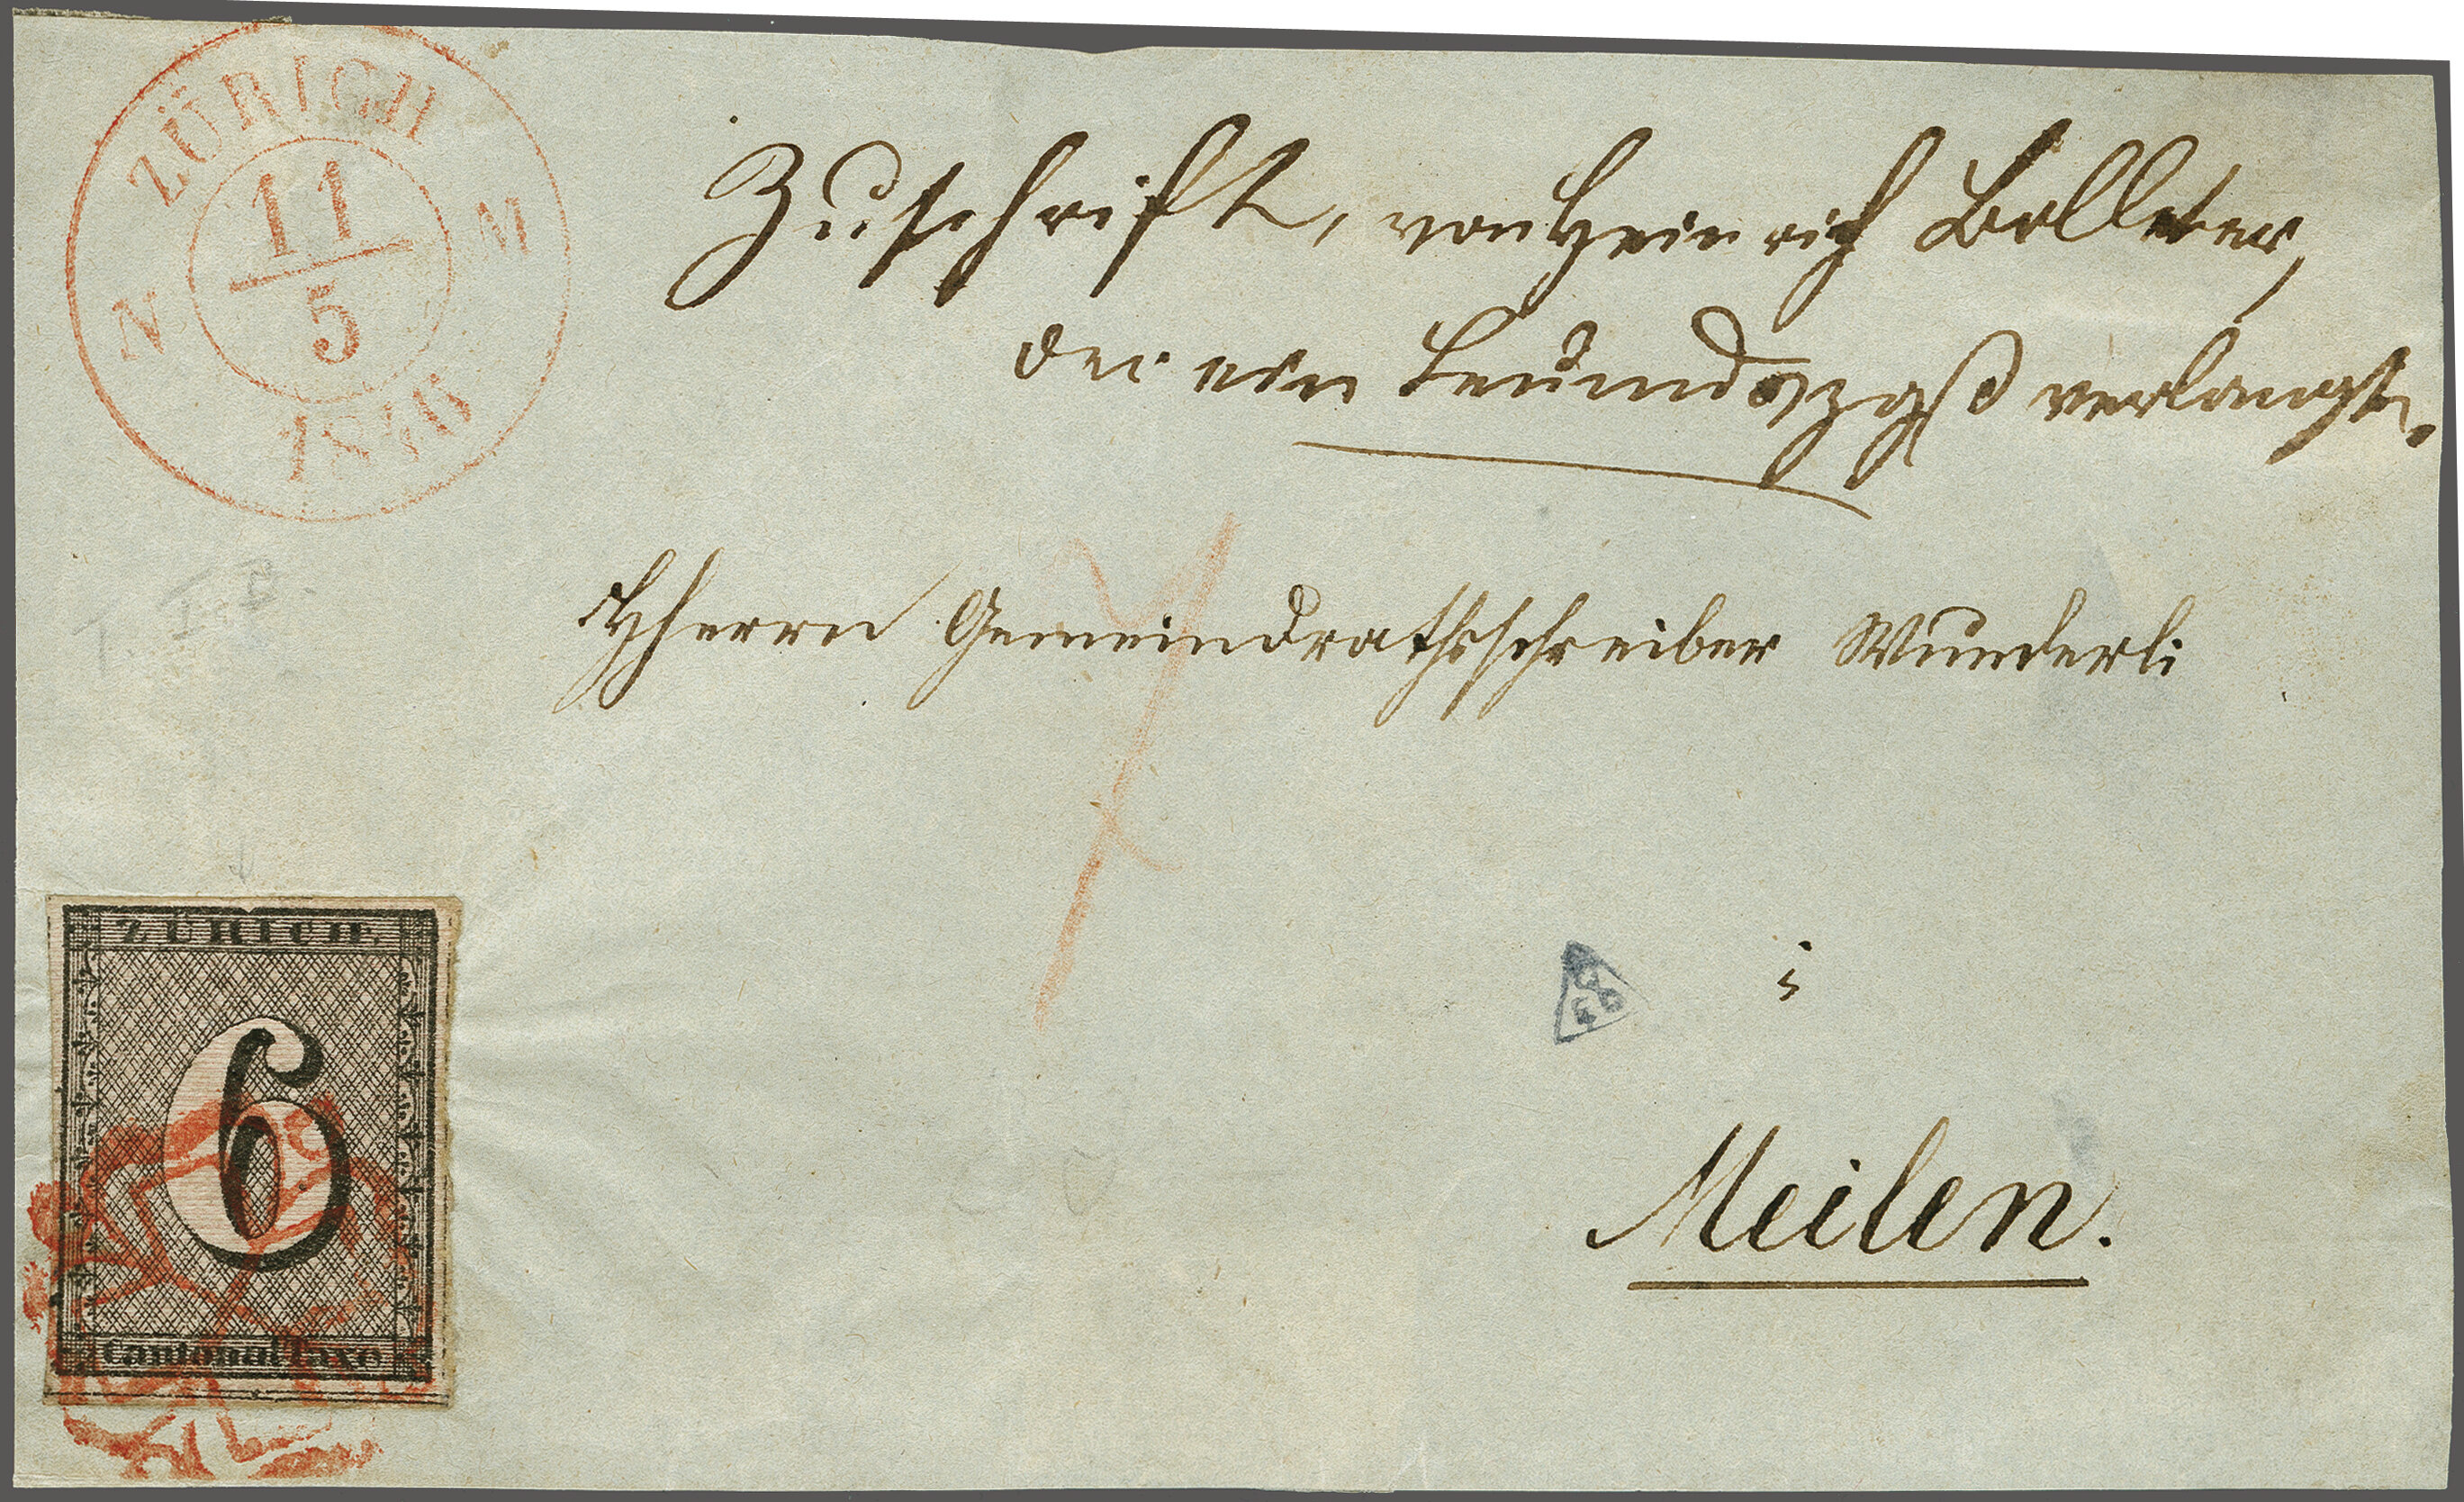 ZÜRICH
11
5
N M
1846
Zuschrift, von Heinrich Bolleter,
der ein verlangt.
Hherrn Gemeindrathsschreiber Wunderli
Meilen.
ZÜRICH.
6
Cantonal Taxe